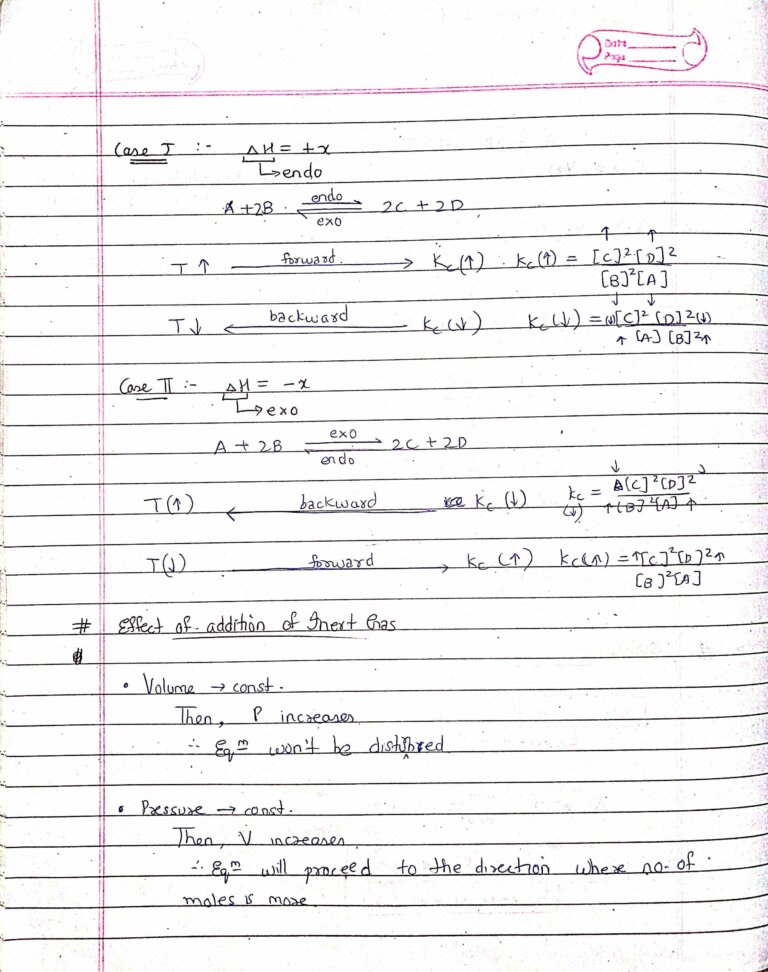 Date
Page
Case I :- ΔH = +x
↳ endo
A + 2B ⇌ 2C + 2D
endo
exo
T ↑ —forward→ Kc(↑) . Kc(↑) = ↑[C]² ↑[D]² / [B]²[A]
T ↓ ←backward— Kc(↓) Kc(↓) = (↓)[C]² [D]²(↓) / ↑[A] [B]²↑
Case II :- ΔH = -x
↳ exo
A + 2B ⇌ 2C + 2D
exo
endo
T(↑) ←backward— Kc (↓) Kc (↓) = [C]²[D]² / ↑[B]²[A]↑
T(↓) —forward→ Kc (↑) Kc(↑) = ↑[C]²[D]²↑ / [B]²[A]
# Effect of addition of Inert Gas
• Volume → const.
Then, P increases
∴ Eqᵐ won't be disturbed
• Pressure → const.
Then, V increases
∴ Eqᵐ will proceed to the direction where no. of
moles is more